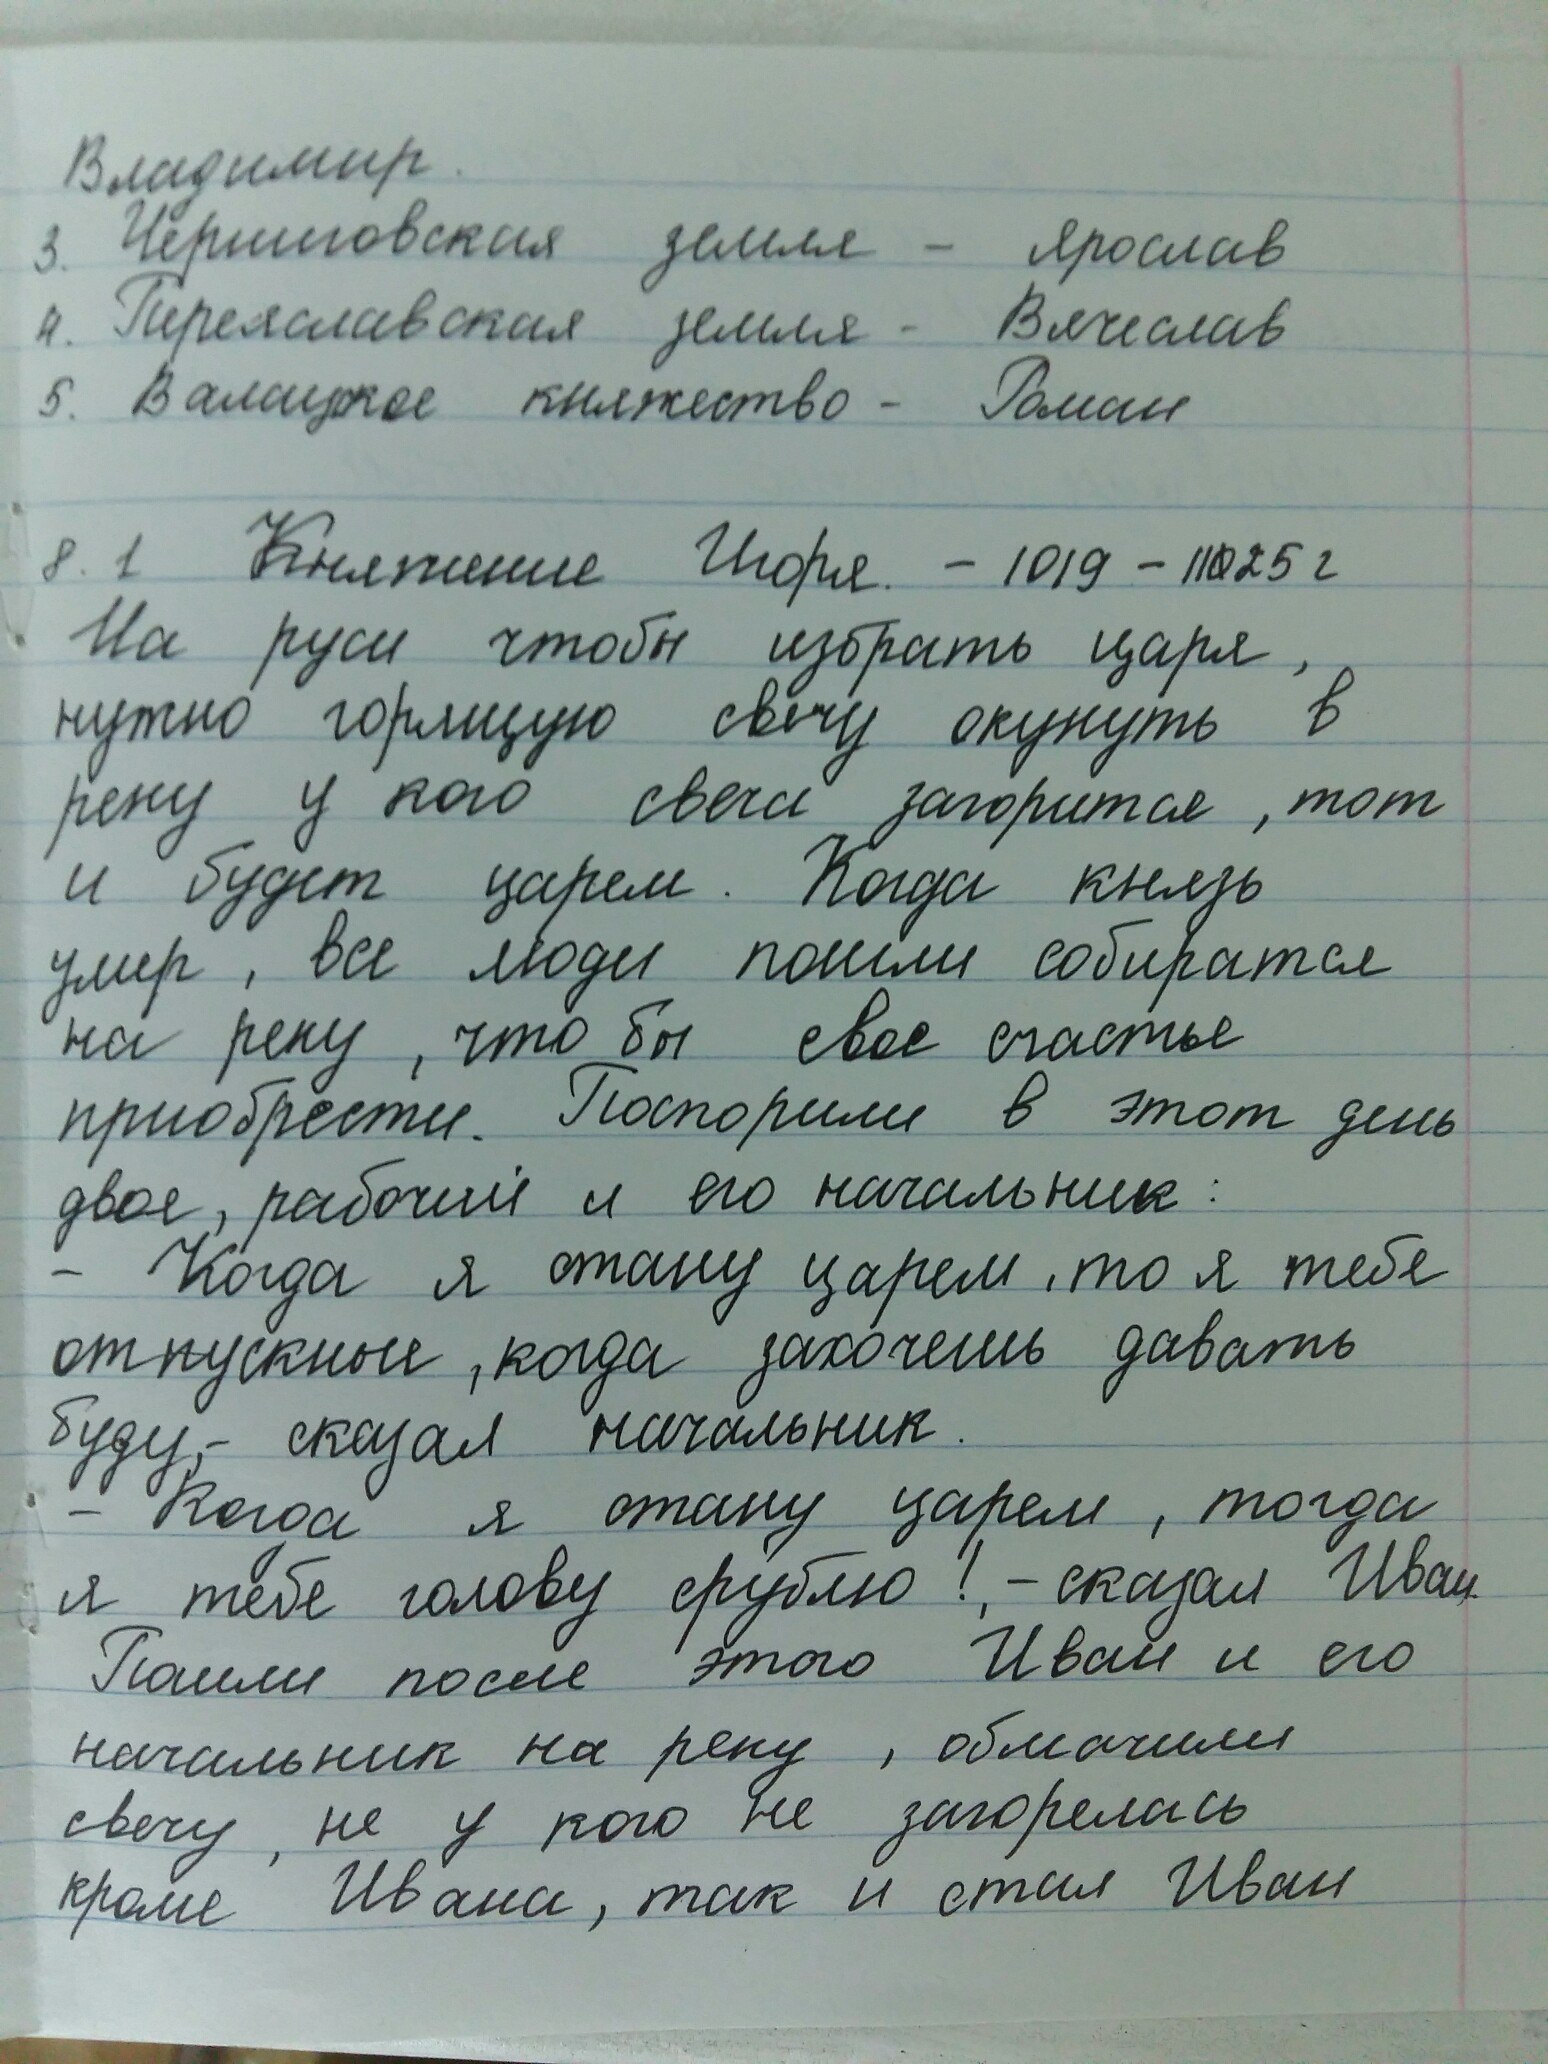 Владимир.
3. Черниговская земля - Ярослав
4. Переяславская земля - Вячеслав
5. княжество - Роман
8. 1 Княжение Игоря. - 1019 - г
На руси чтобы избрать царя,
нужно горящую свечу окунуть в
реку у кого свеча загорится, тот
и будет царем. Когда князь
умер, все люди пошли собиратся
на реку, что бы свое счастье
приобрести. Поспорили в этот день
двое, рабочий и его начальник:
- Когда я стану царем, то я тебе
отпускные, когда захочешь давать
буду,- сказал начальник.
- Когда я стану царем, тогда
я тебе голову срублю!, - сказал Иван.
Пошли после этого Иван и его
начальник на реку, обмочили
свечу, не у кого не загорелась
кроме Ивана, так и стал Иван